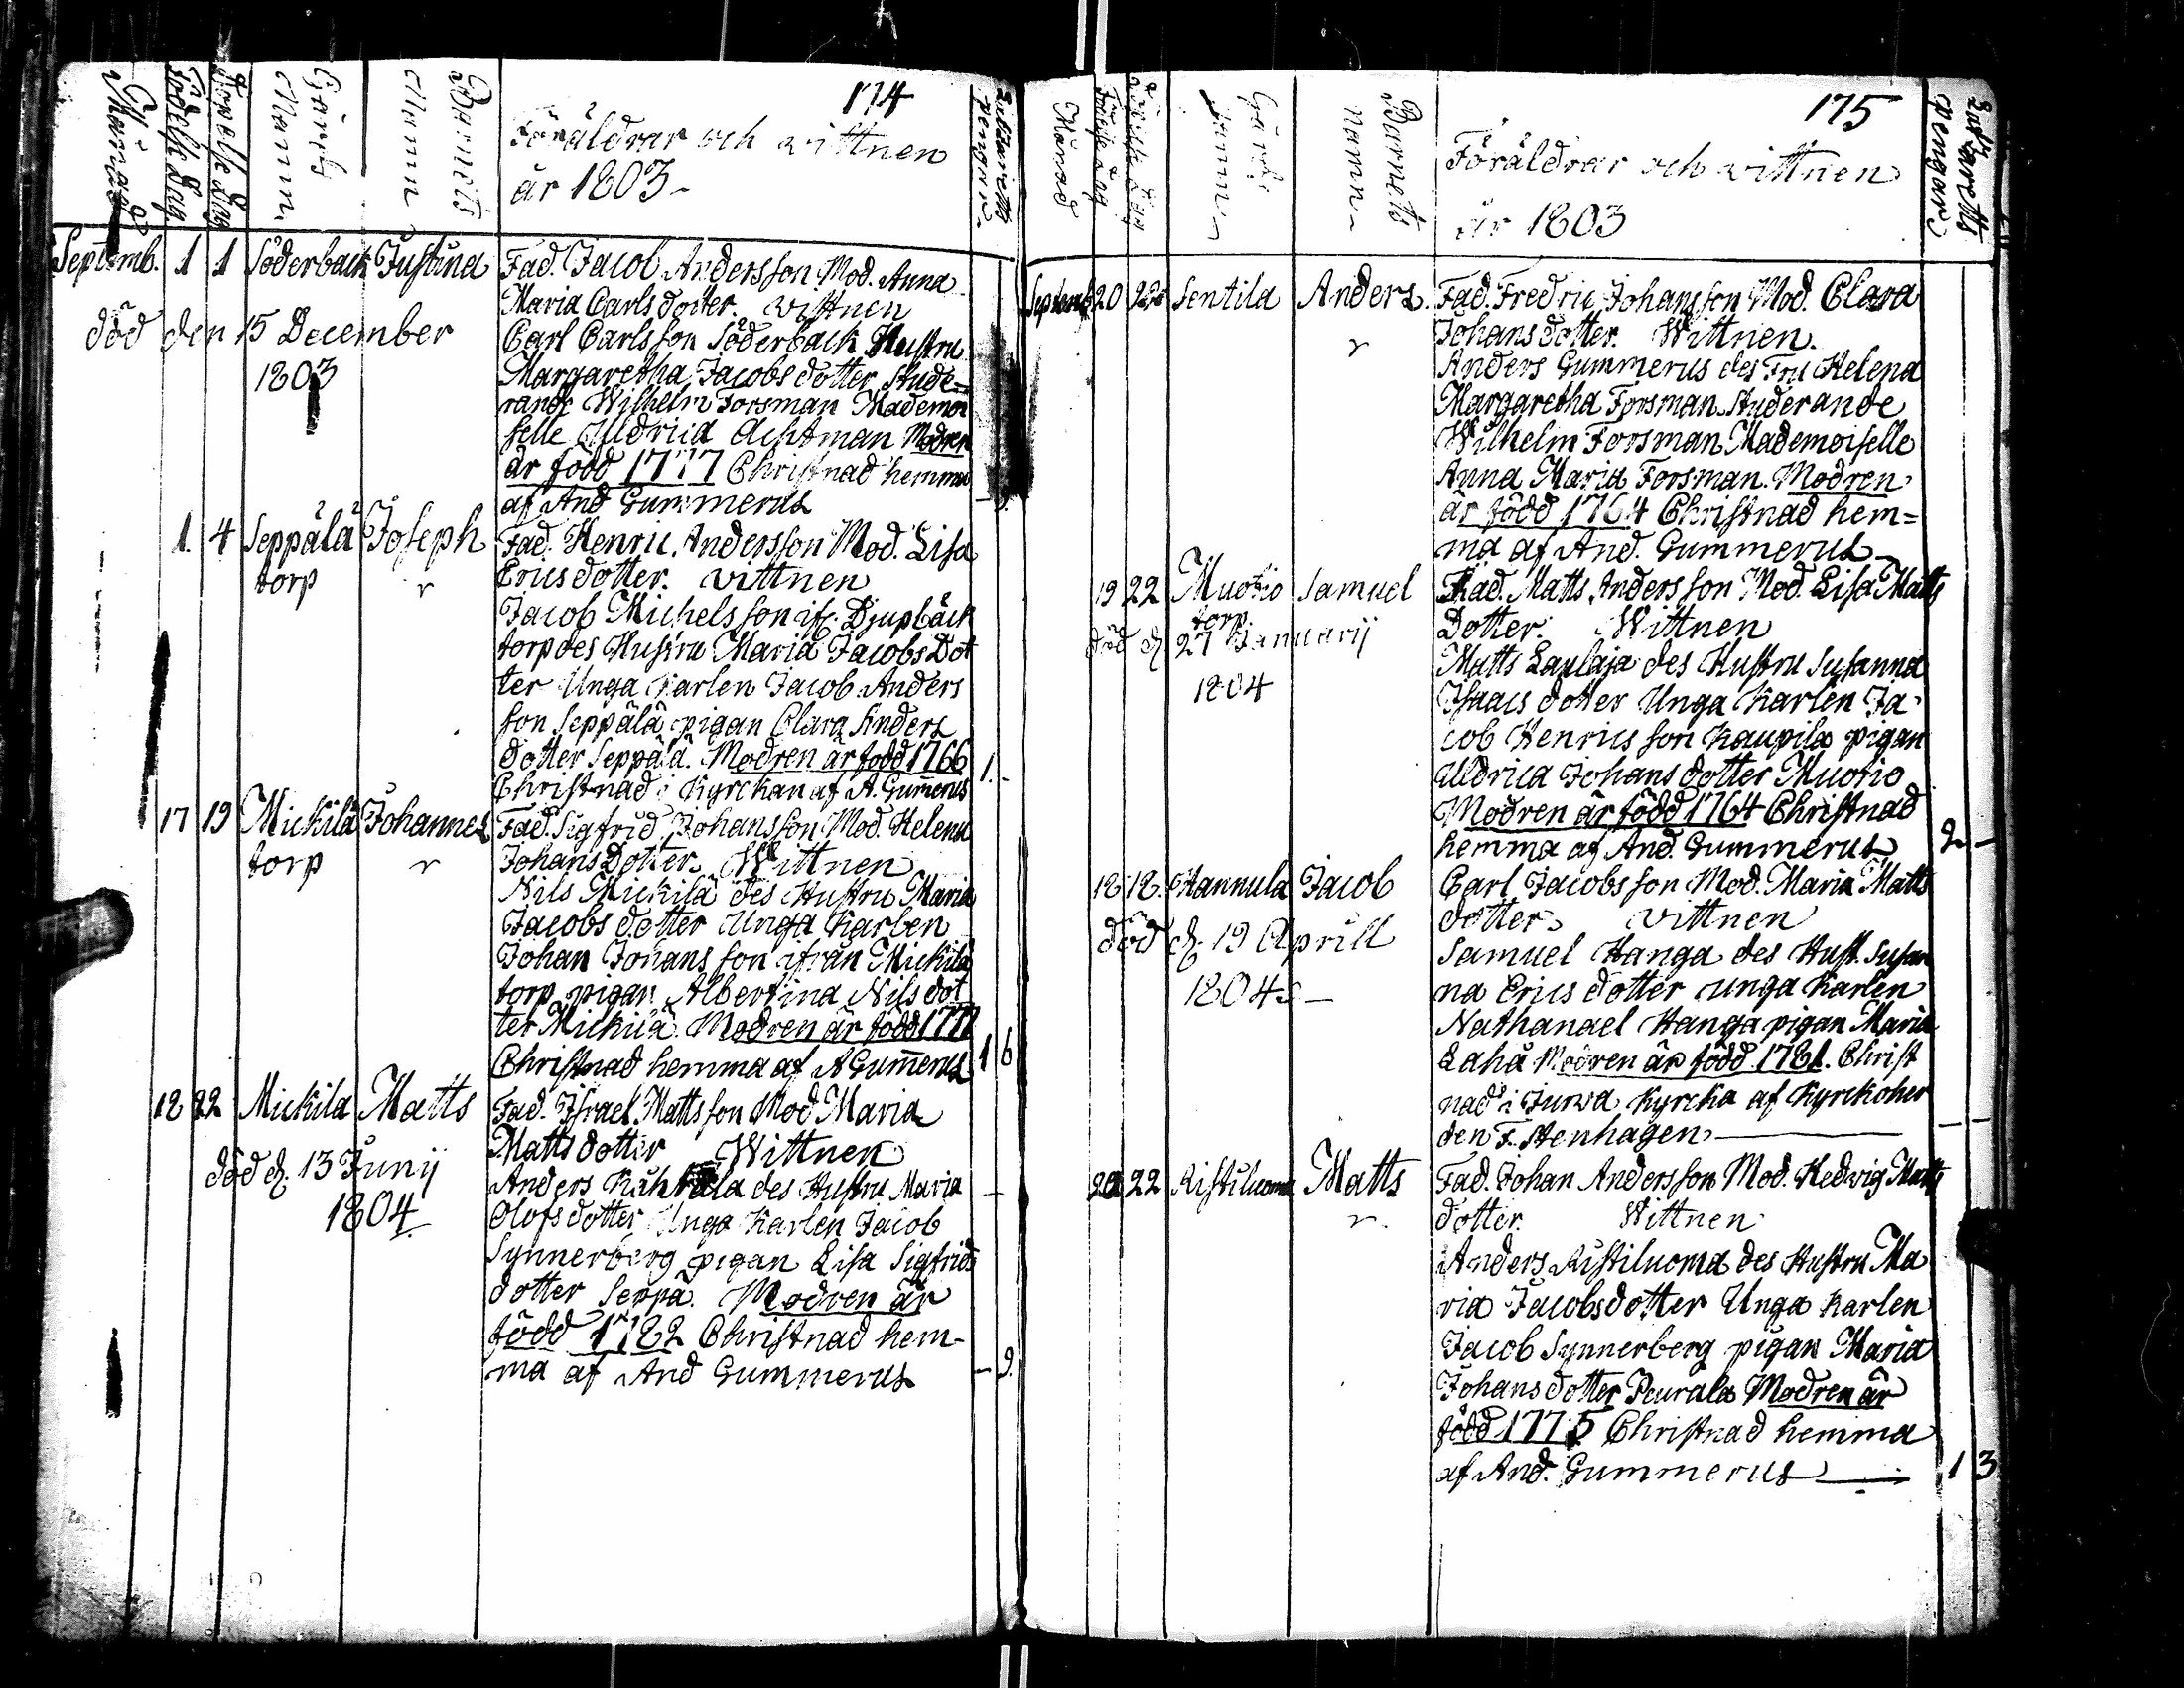 174
Månad
Födelse Dag
Döpelse Dag
Gårds Namn
Barnets Namn
Föräldrar och wittnen
år 1803
Lassaretts pengar
Septemb. 1 1 Söderback Justina
död den 15 December
1803
Fad. Jacob Andersson Mod. Anna
Maria Carlsdotter. vittnen
Carl Carlsson Söderback Hustru
Margaretha Jacobsdotter Stude-
rande Wilhelm Forsman Mademoi
selle Uldrica Achtman Modren
är född 1777 Christnad hemma
af And Gummerus
9.
1. 4 Seppälä Joseph
torp
Fad. Henric Andersson Mod. Lisa
Ericsdotter. vittnen
Jacob Michelsson if. Djupbäck
torp des Hustru Maria Jacobs Dot
ter Unga Karlen Jacob Anders
son Seppälä pigan Clara Anders
dotter Seppälä. Modren är född 1766
Christnad i Kyrckan af A. Gum̅erus
1. -
17 19 Mickilä Johannes
torp
Fad. Sigfrid Johansson Mod. Helena
Johans Dotter. Wittnen
Nils Mickilä des Hustru Maria
Jacobsdotter Unga Karlen
Johan Johansson ifrån Mickilä
torp pigan Albertina Nilsdot
ter Mickilä. Modren är född 1772
Christnad hemma af A Gum̅erus
1 6
18 22 Mickila Matts
död d. 13 Junij
1804.
Fad. Israel Mattsson Mod Maria
Mattsdotter Wittnen
Anders des Hustru Maria
Olofsdotter Unga Karlen Jacob
Synnerberg pigan Lisa Sigfrids
dotter Seppä. Modren är
född 1782 Christnad hem-
ma af And Gummerus
- 9.
175
Månad
Födelse Dag
Döpelse Dag
Gårds namn
Barnets namn
Föräldrar och wittnen
år 1803
Lassaretts pengar
Septemb 20 22 Sentila Anders.
Fad. Fredric Johansson Mod. Clara
Johansdotter. Wittnen.
Anders Gummerus des Fru Helena
Margaretha Forsman Studerande
Wilhelm Forsman Mademoiselle
Anna Maria Forsman. Modren
är född 1764 Christnad hem=
ma af And. Gummerus
19 22 Muotio Samuel
torp.
död d. 27 Januarij
1804
Fad. Matts Andersson Mod. Lisa Matts
Dotter. Wittnen
Matts Laulaja des Hustru Susanna
Isaacsdotter Unga Karlen Ja
cob Henricsson Kaupila pigan
Uldrica Johansdotter Muotio
Modren är född 1764 Christnad
hemma af And. Gummerus
2 -
18 18. Hannula Jacob
död d. 19 Aprill
1804
Carl Jacobsson Mod. Maria Matts
dotter vittnen
Samuel Hanga des Hust. Susan
na Ericsdotter unga Karlen
Nathanael Hanga pigan Maria
Laha Modren är född 1781. Christ
nad i Jurwa Kyrcka af Kyrckoher
den F. Stenhagen
20 22 Ristiluoma Matts
Fad. Johan Andersson Mod. Hedwig Matts
dotter. Wittnen
Anders Ristiluoma des Hustru Ma
ria Jacobsdotter Unga Karlen
Jacob Synnerberg pigan Maria
Johansdotter Peurala Modren är
född 1775 Christnad hemma
af And. Gummerus
1 3